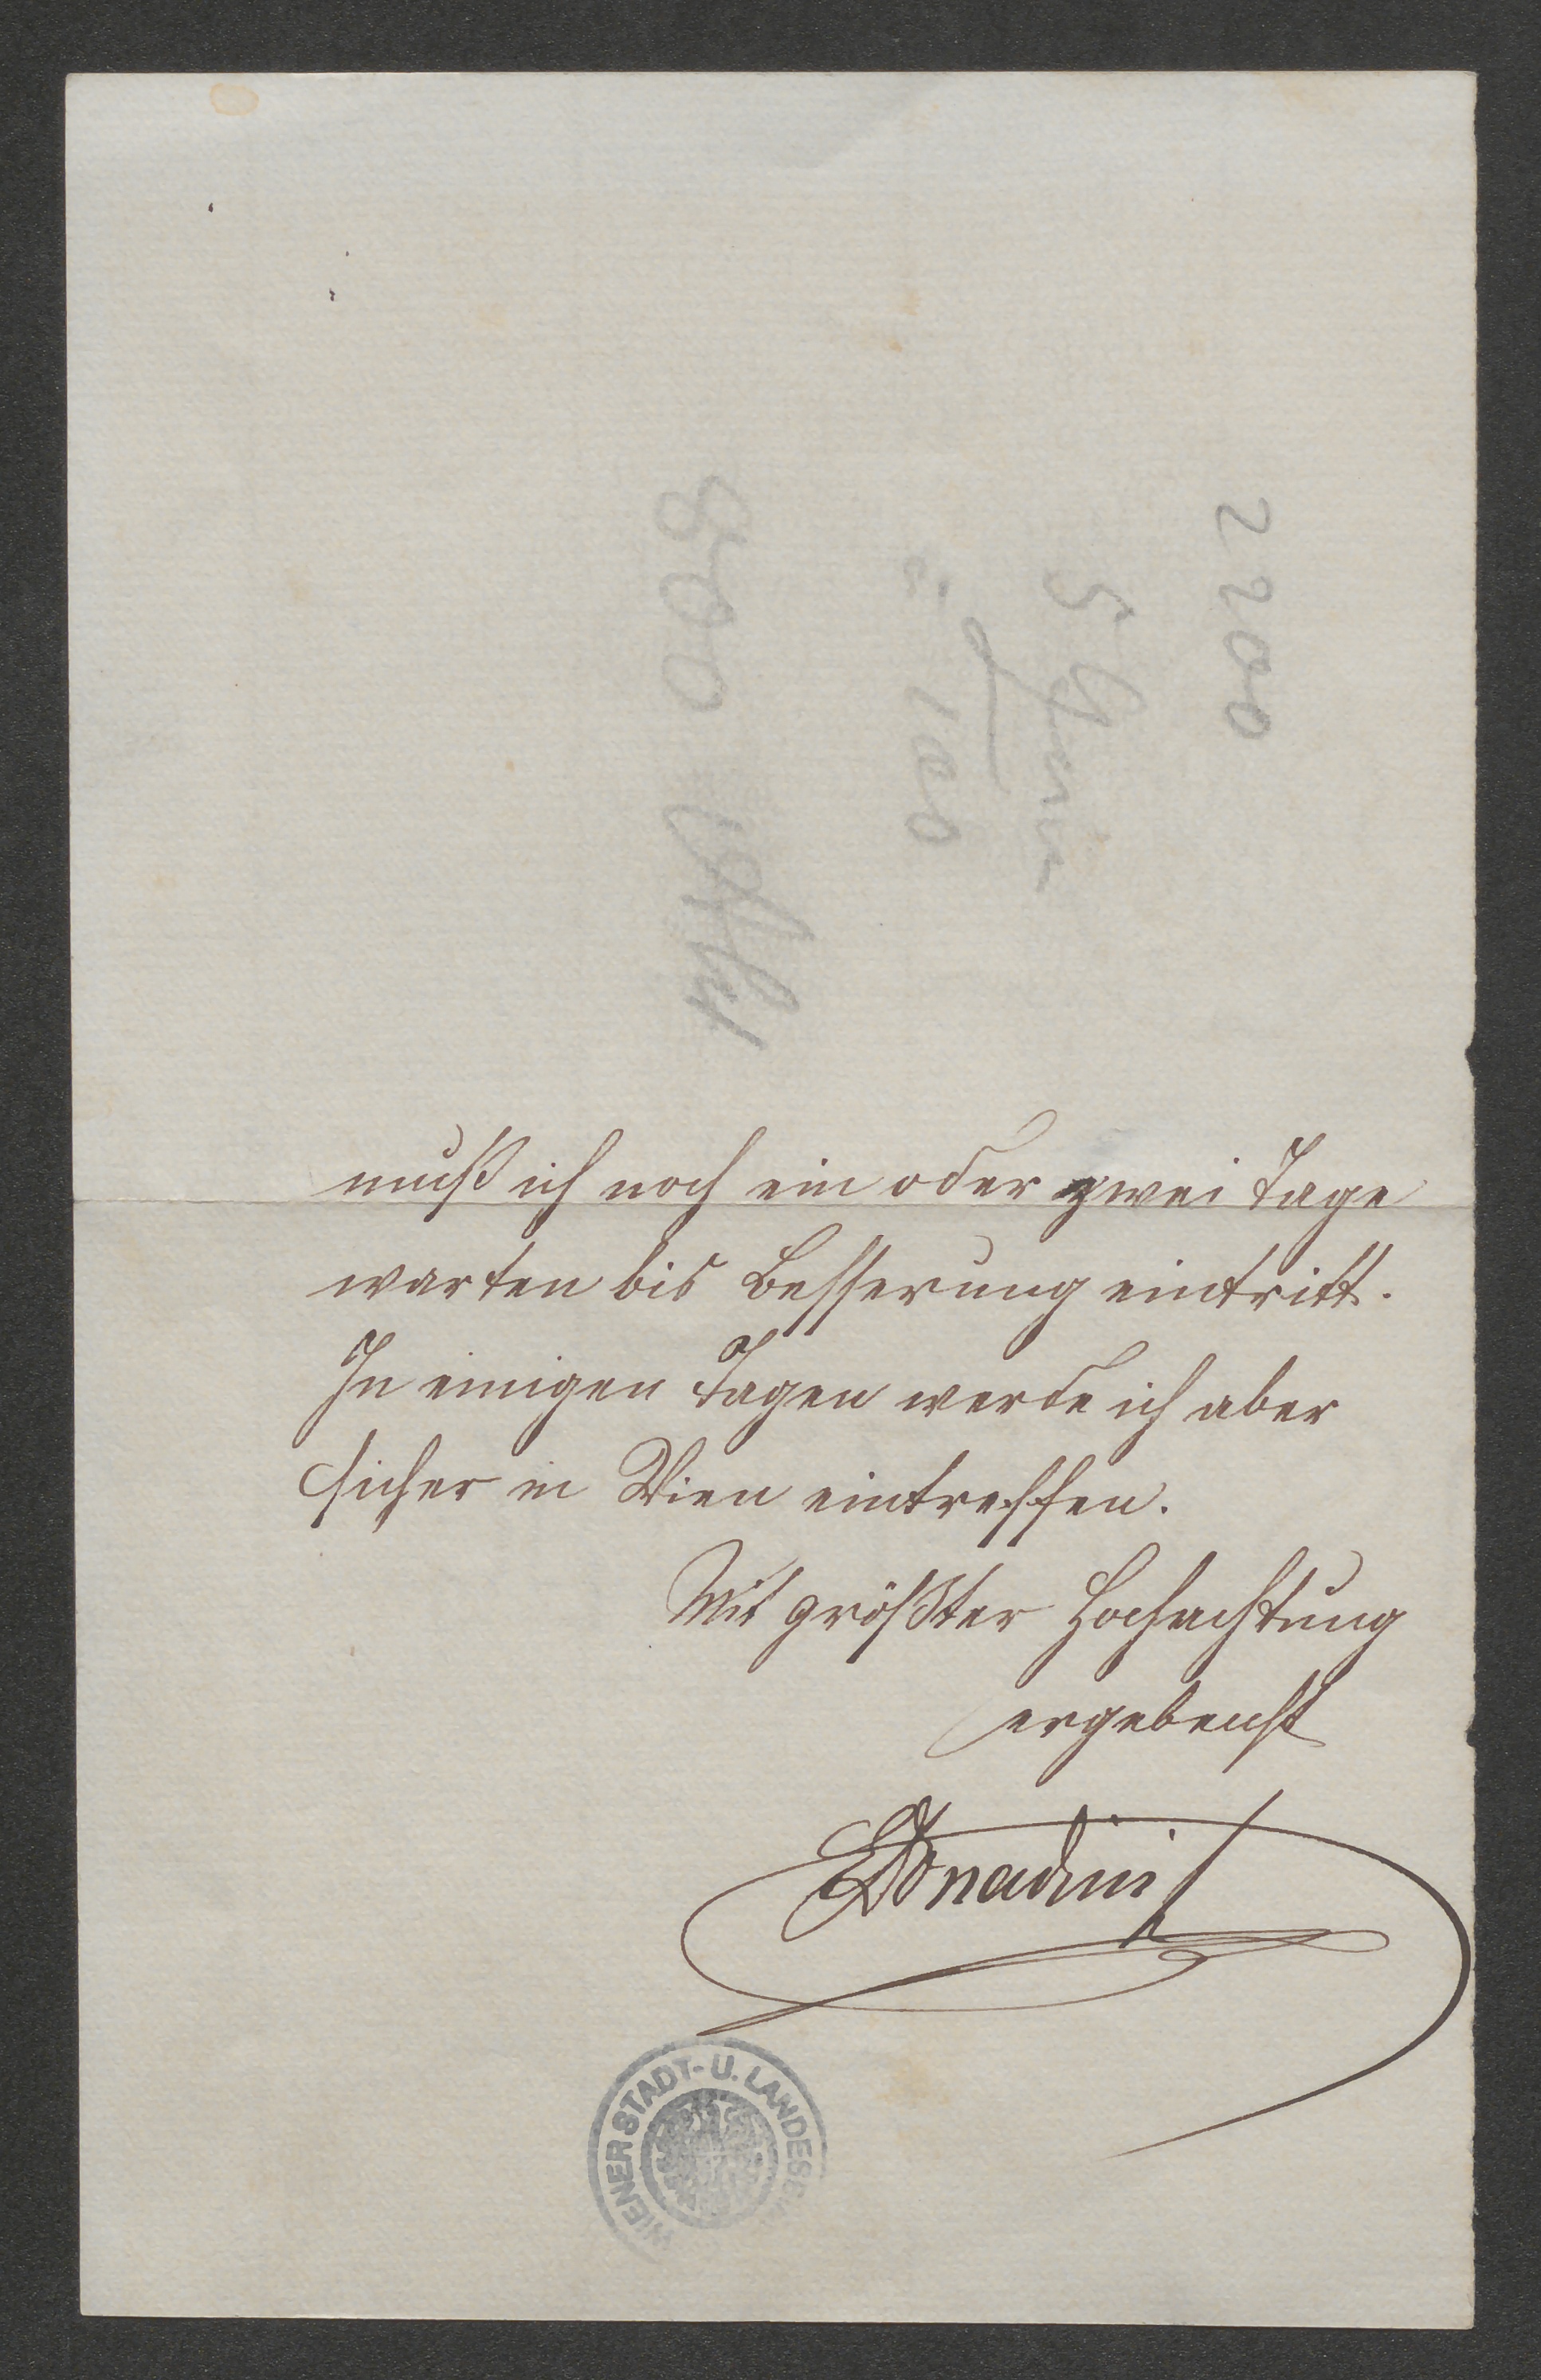 2200
5
à 100
800
muß ich noch ein oder zwei Tage
warten bis Besserung eintritt.
In einigen Tagen werde ich aber
sicher in Wien eintreffen.
Mit größter Hochachtung
ergebenst
EDonadini
WIENER STADT- U. LANDES